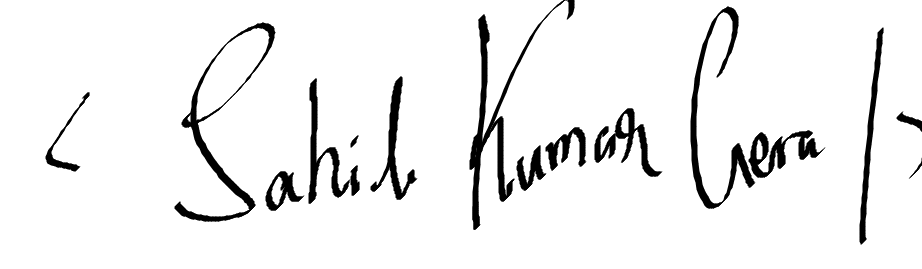 < Sahil Kumar Gera />